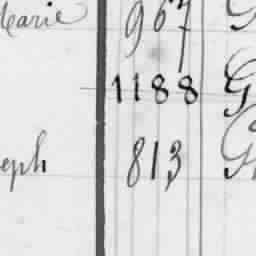 Marie 967 G
1188 G
eph 813 G